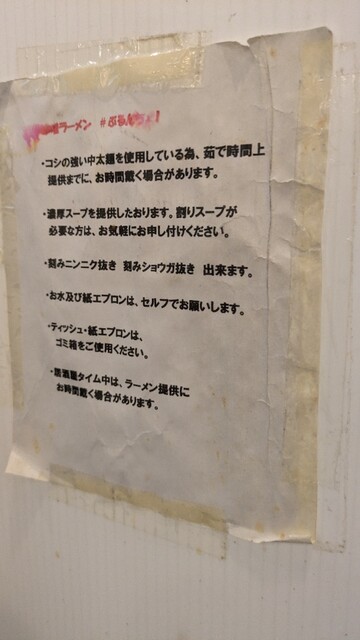 ラーメン #ぶるんちょ!
・コシの強い中太麺を使用している為、茹で時間上
提供までに、お時間戴く場合があります。
・濃厚スープを提供したおります。割りスープが
必要な方は、お気軽にお申し付けください。
・刻みニンニク抜き 刻みショウガ抜き 出来ます。
・お水及び紙エプロンは、セルフでお願いします。
・ティッシュ・紙エプロンは、
ゴミ箱をご使用ください。
・居酒屋タイム中は、ラーメン提供に
お時間戴く場合があります。